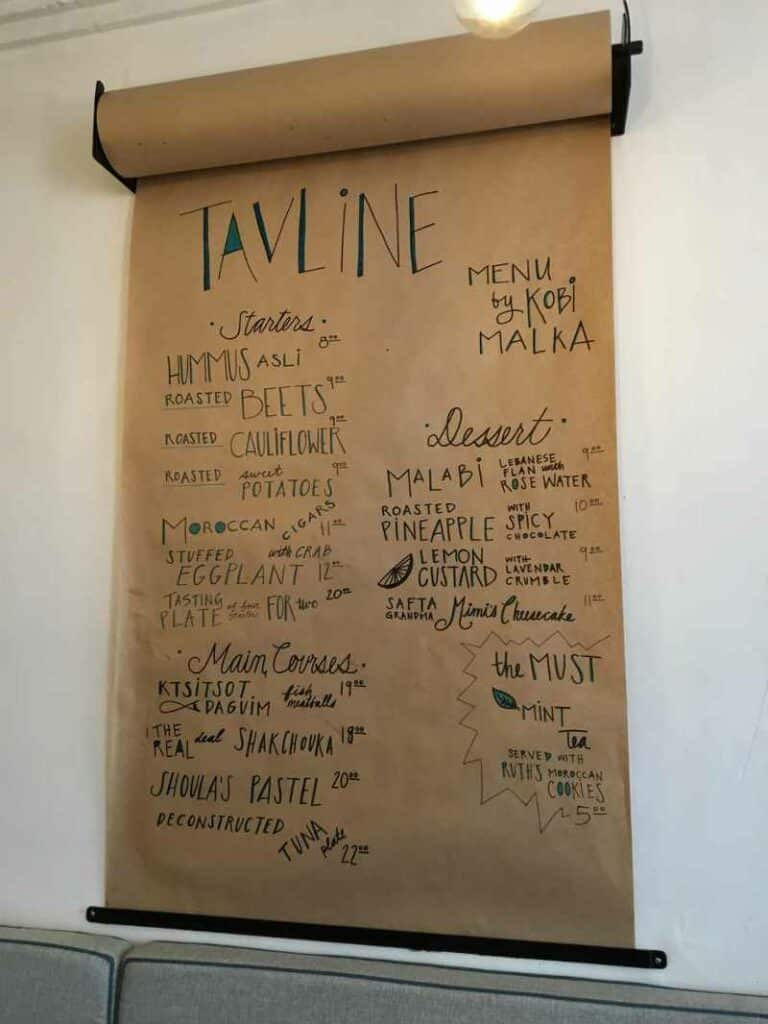 TAVLINE
MENU
by KOBI
MALKA
Starters
HUMMUS ASLI 8.00
ROASTED BEETS 9.00
ROASTED CAULIFLOWER 9.00
ROASTED sweet POTATOES 9.00
MOROCCAN CIGARS 11.00
STUFFED EGGPLANT with CRAB 12.00
TASTING PLATE of four FOR two 20.00
Main Courses
KTSITSOT DAGUIM fish meatballs 19.00
THE REAL deal SHAKCHOUKA 18.00
SHOULA'S PASTEL 20.00
DECONSTRUCTED
TUNA plate 22.00
Dessert
MALABI LEBANESE FLAN with ROSE WATER 9.00
ROASTED PINEAPPLE WITH SPICY CHOCOLATE 10.00
LEMON CUSTARD WITH LAVENDAR CRUMBLE 9.00
SAFTA GRANDMA Mimi's Cheesecake 11.00
the MUST
MINT
Tea
SERVED WITH
RUTH'S MOROCCAN
COOKIES
5.00